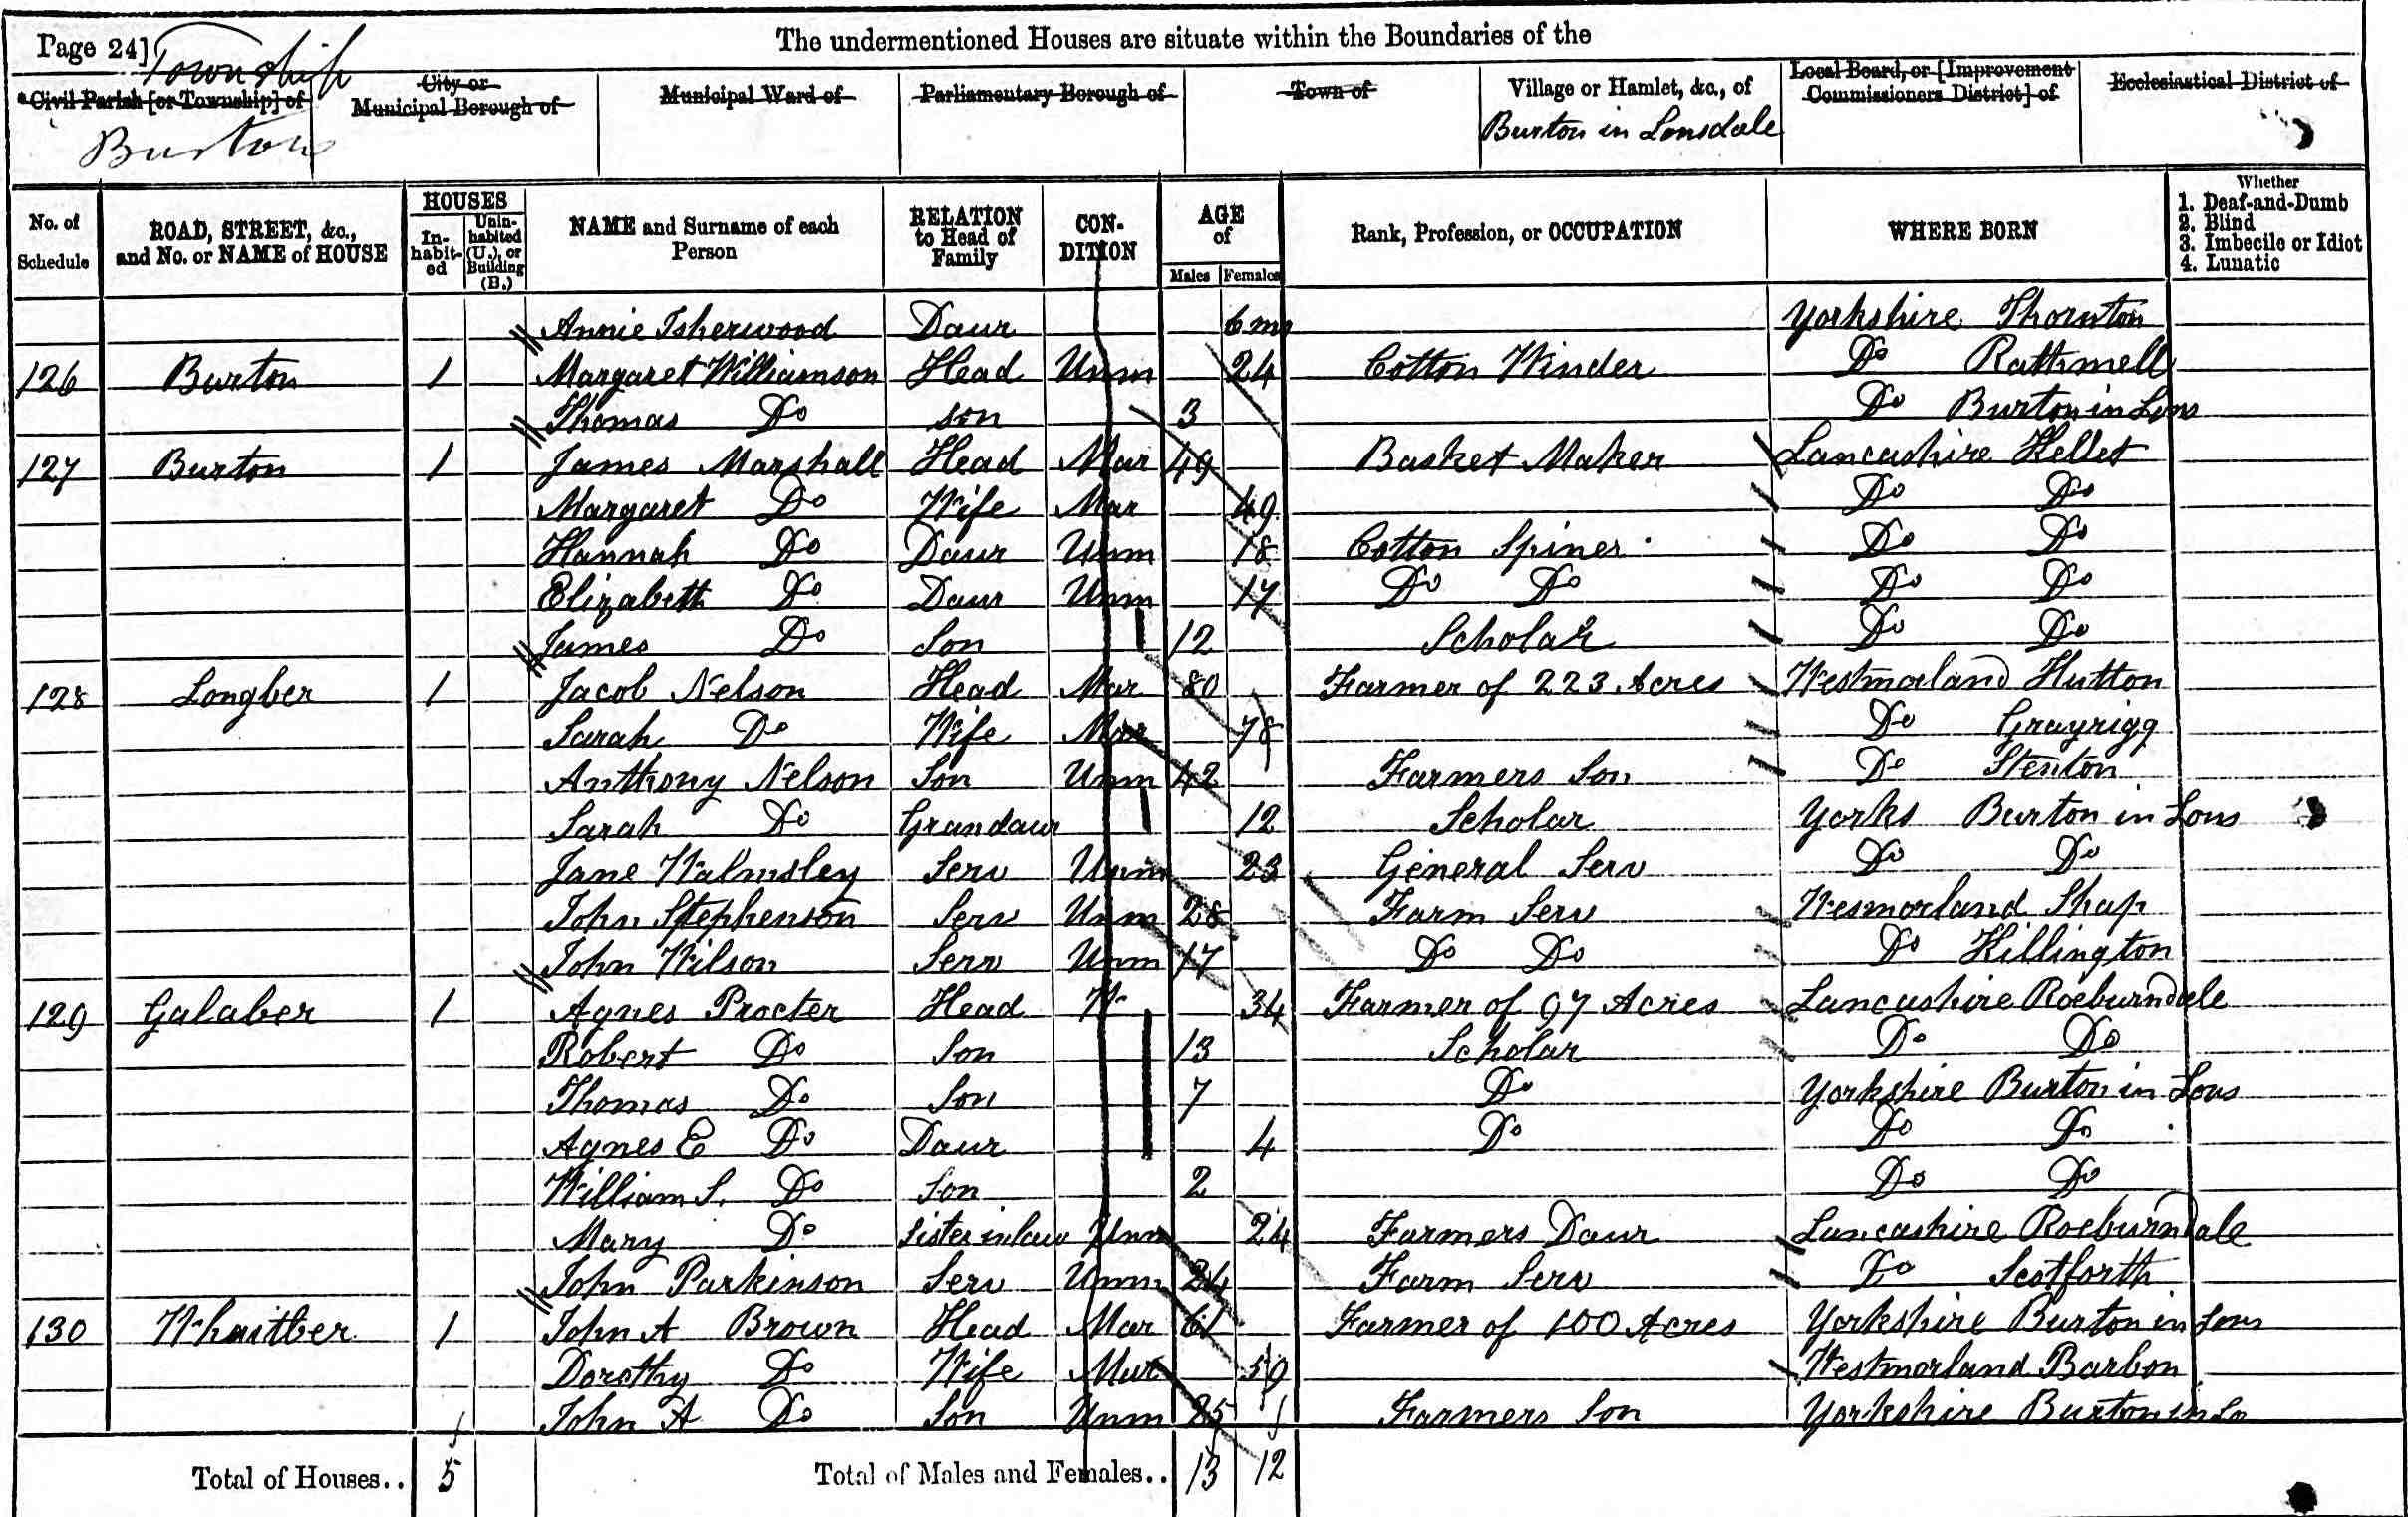 Page 24] The undermentioned Houses are situate within the Boundaries of the
Township
Civil Parish [or Township] of City or Municipal Borough of Municipal Ward of Parliamentary Borough of Town of Village or Hamlet, &c., of Local Board, or [Improvement Commissioners District] of Ecclesiastical District of
Burton Burton in Lonsdale
No. of Schedule ROAD, STREET, &c., and No. or NAME of HOUSE HOUSES Inhabited Uninhabited (U.), or Building (B.) NAME and Surname of each Person RELATION to Head of Family CONDITION AGE of Males Females Rank, Profession, or OCCUPATION WHERE BORN Whether 1. Deaf-and-Dumb 2. Blind 3. Imbecile or Idiot 4. Lunatic
Annie Isherwood Daur 6 ms Yorkshire Thornton
126 Burton 1 Margaret Williamson Head Unm 24 Cotton Winder Do Rathmell
Thomas Do son 3 Do Burton in Lons
127 Burton 1 James Marshall Head Mar 49 Basket Maker Lancashire Kellet
Margaret Do Wife Mar 49 Do Do
Hannah Do Daur Unm 18 Cotton Spiner Do Do
Elizabeth Do Daur Unm 17 Do Do Do Do
James Do Son 12 Scholar Do Do
128 Longber 1 Jacob Nelson Head Mar 80 Farmer of 223 Acres Westmorland Hutton
Sarah Do Wife Mar 78 Do Grayrigg
Anthony Nelson Son Unm 42 Farmers Son Do Stenton
Sarah Do Grandaur 12 Scholar Yorks Burton in Lons
Jane Walmsley Serv Unm 23 General Serv Do Do
John Stephenson Serv Unm 28 Farm Serv Wesmorland Shap
John Wilson Serv Unm 17 Do Do Do Killington
129 Galaber 1 Agnes Procter Head W 34 Farmer of 97 Acres Lancashire Roeburndale
Robert Do Son 13 Scholar Do Do
Thomas Do Son 7 Do Yorkshire Burton in Lons
Agnes E Do Daur 4 Do Do Do
William S. Do Son 2 Do Do
Mary Do Sister in law Unm 24 Farmers Daur Lancashire Roeburndale
John Parkinson Serv Unm 24 Farm Serv Do Scotforth
130 Whaitber 1 John A Brown Head Mar 61 Farmer of 100 Acres Yorkshire Burton in Lons
Dorothy Do Wife Mar 59 Westmorland Barbon
John A Do Son Unm 25 Farmers Son Yorkshire Burton in Lo
Total of Houses.. 5 Total of Males and Females.. 13 12